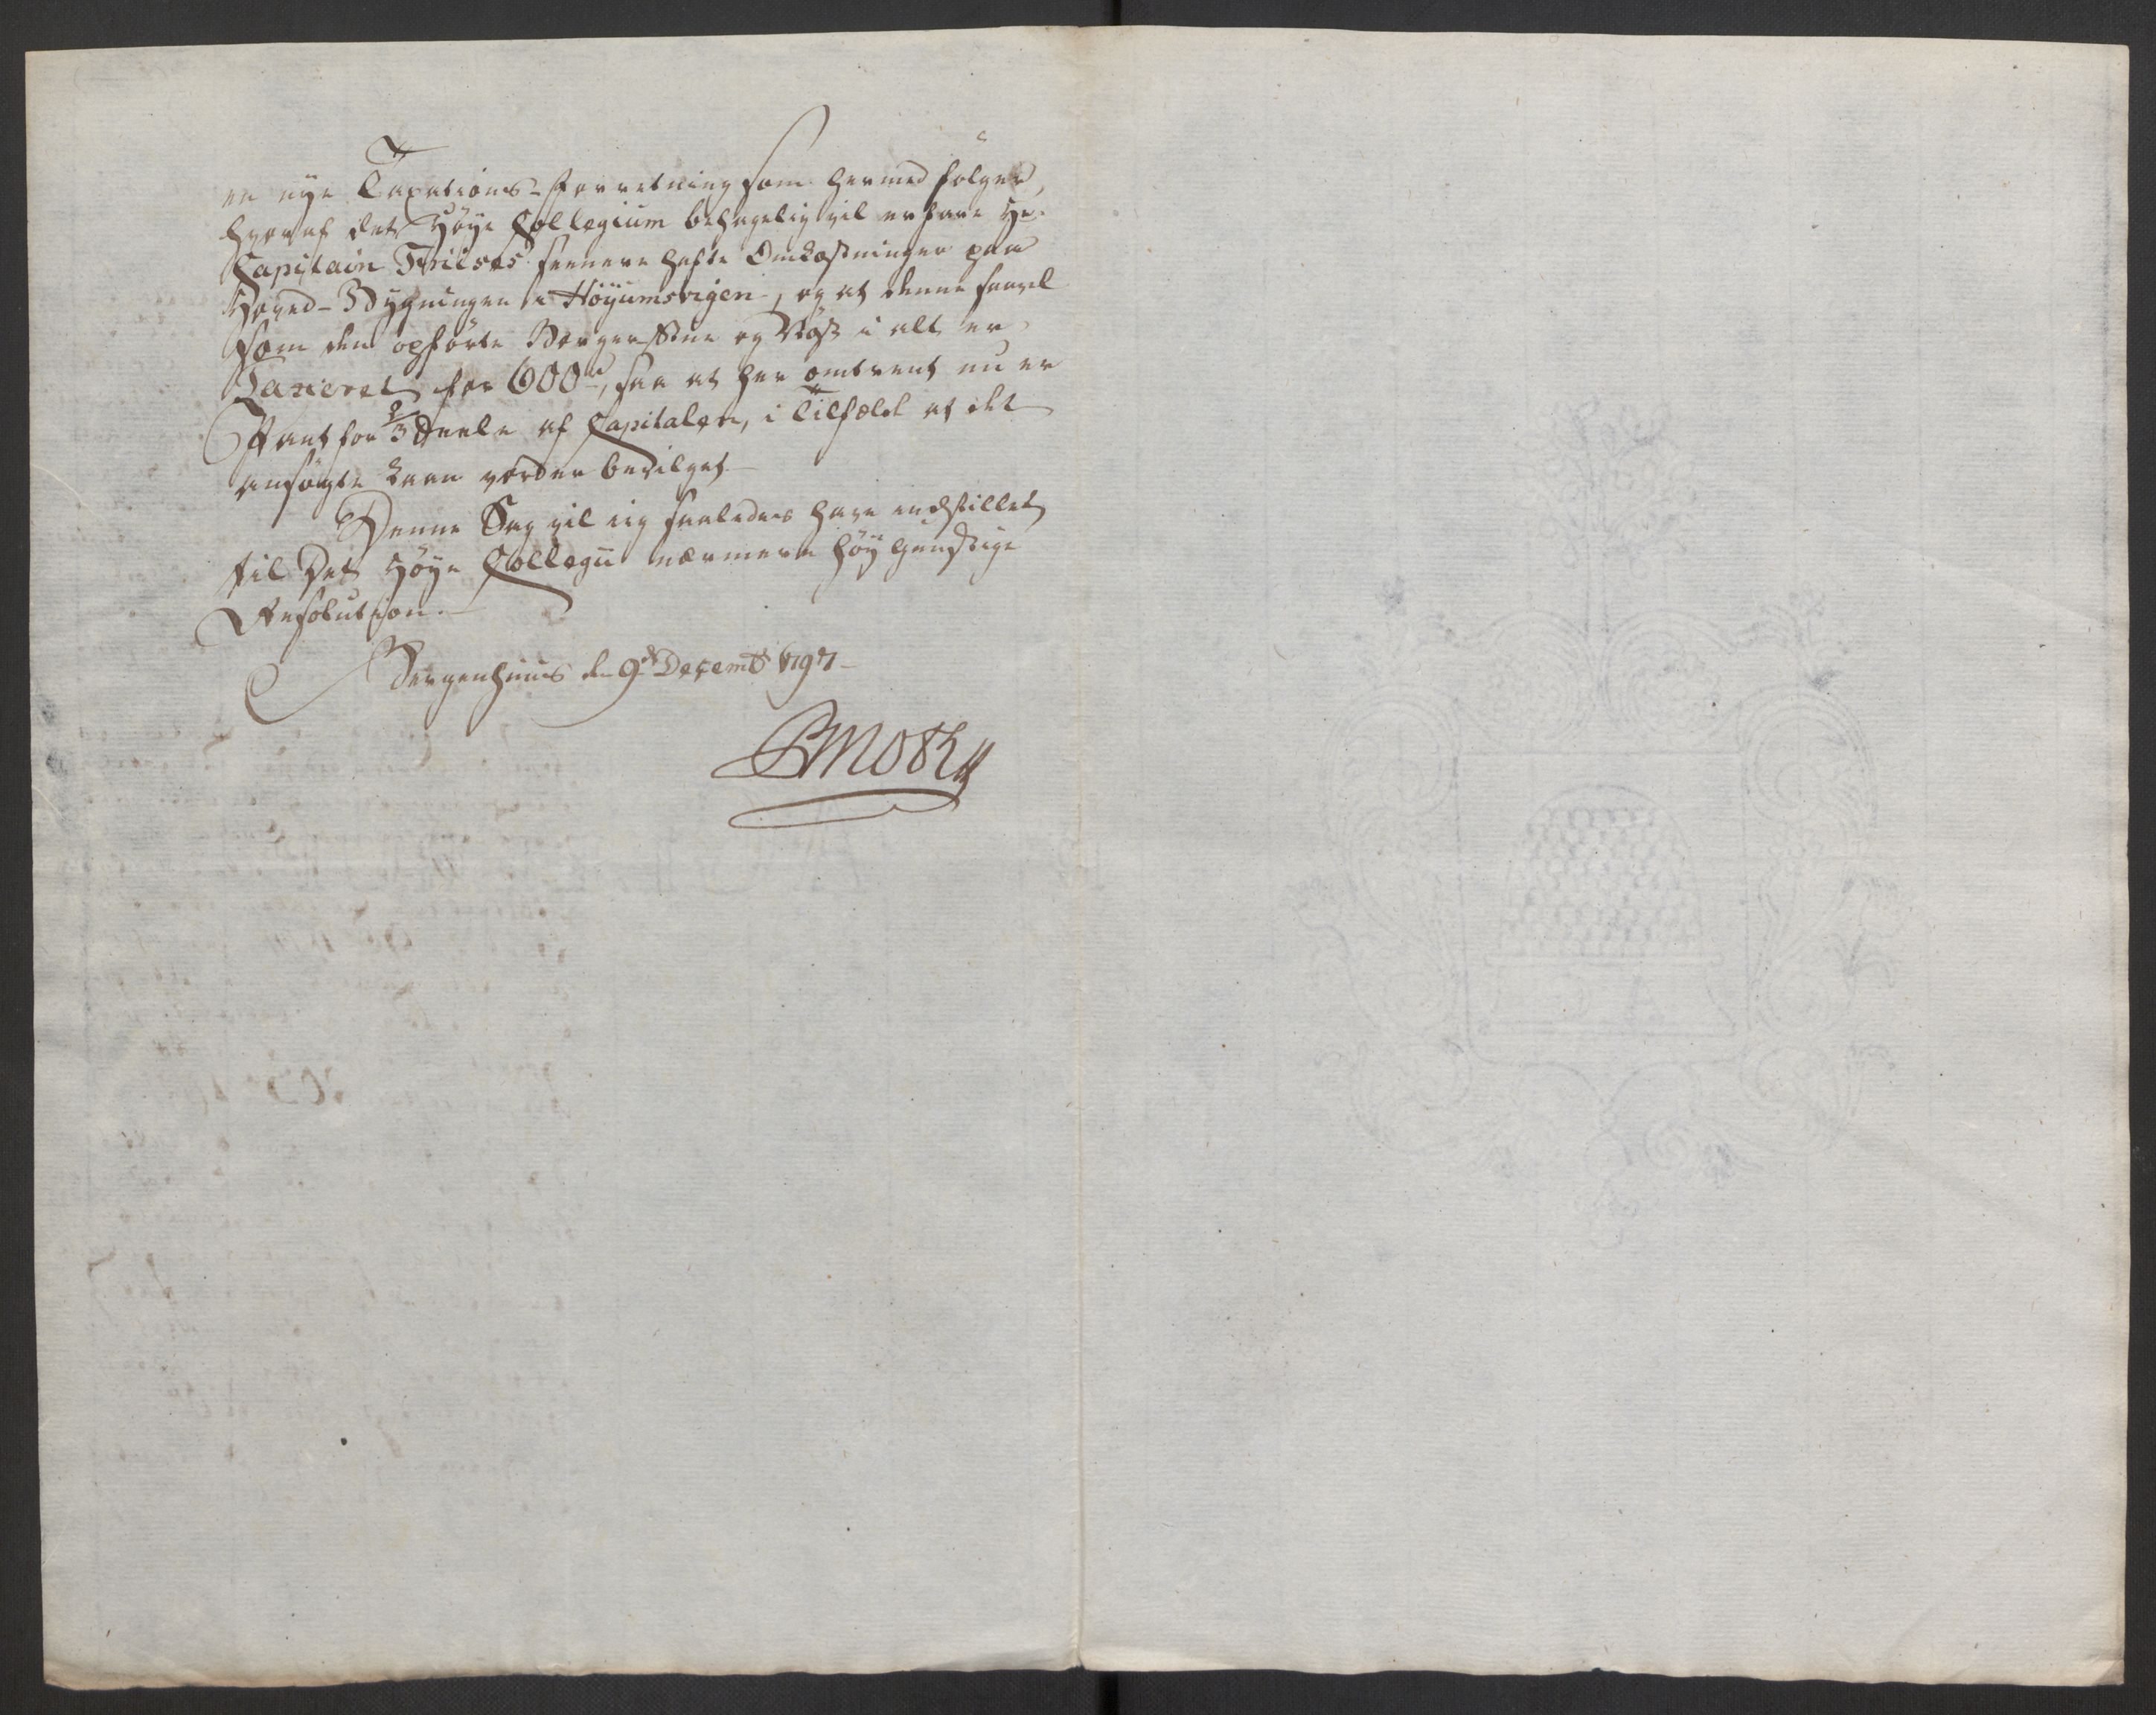 en nye Taxations-Forretning som hermed følger,
hvoraf det Høye Collegium behagelig vil erfare Hr.
Capitain Friises seenere hafte Omkostninger paa
Hoved-Bygningen i Höyumsvigen, og at denne saavel
som den opførte Borgerstue og i alt er
Taxeret for 600 rd, saa at her omtrent nu er
Pant for 2/3 Deele af Capitalen, i Tilfæld at det
ansøgte Laan vorder bevilget.
Denne Sag vil jeg saaledes have indstillet
til Det Høye Collegii nærmere høygunstige
Resolution.
Bergenhuus den 9de Decemb 1797